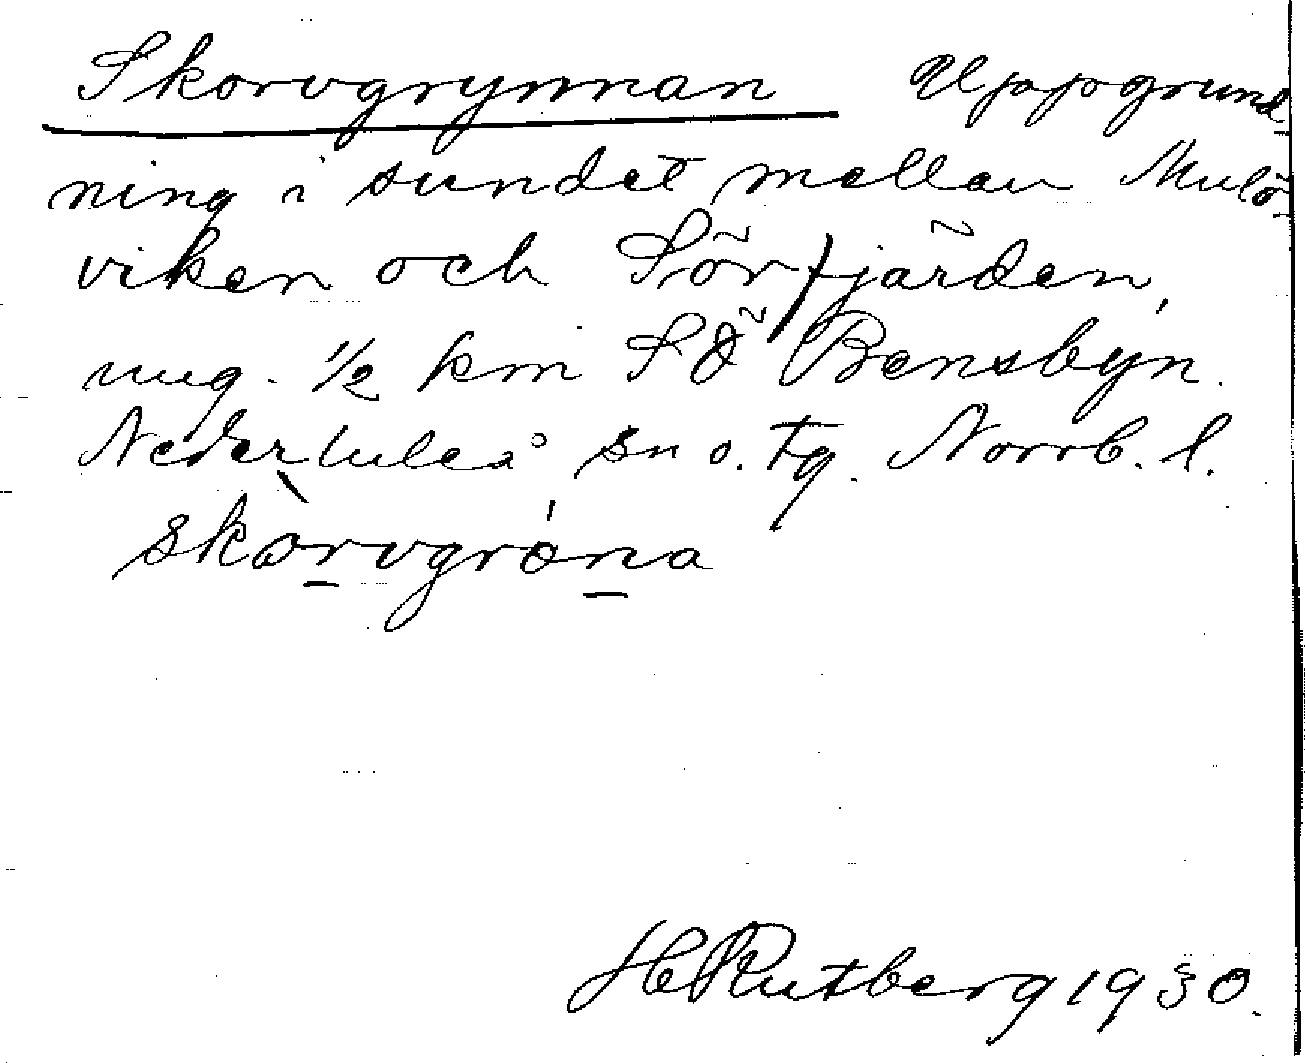 Skorvgrynnan Uppgrund-
ning i sundet mellan Mulö-
viken och Sörfjärden,
ung. 1/2 km SÖ Bensbyn.
Nederluleå sn o. tg. Norrb. l.
skòrvgróna
H Rutberg 1930.